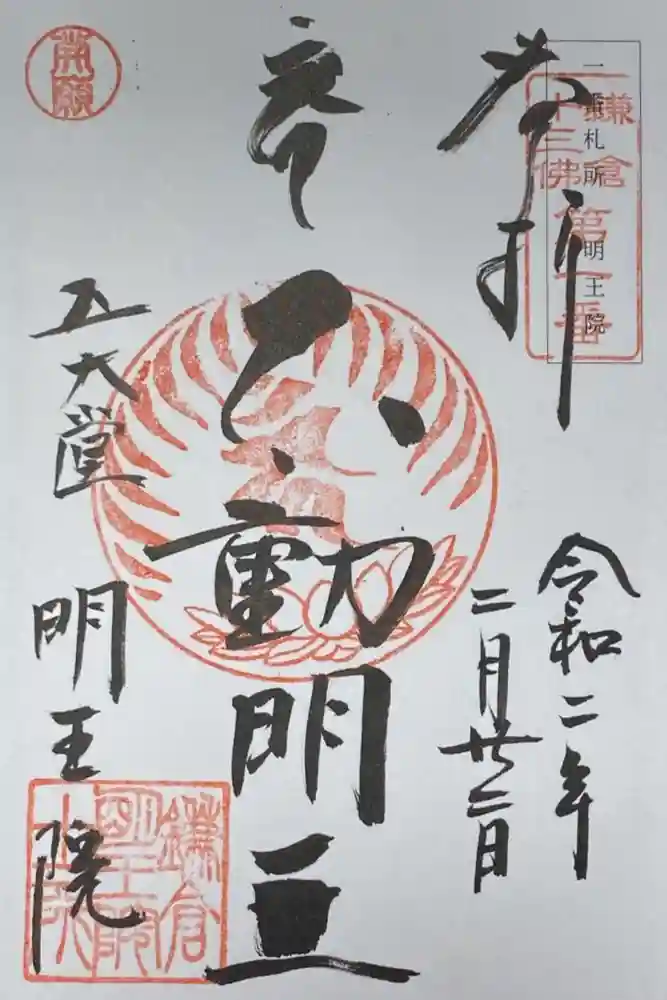 奉拝
一番札所 明王院
鎌倉
十三佛
第一番
令和二年
二月廿二日
不動明王
五大堂
明王院
鎌倉
明王院